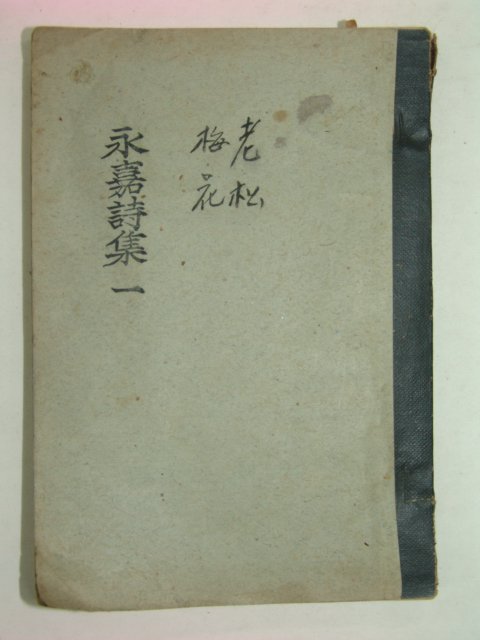 老松
梅花
永嘉詩集 一